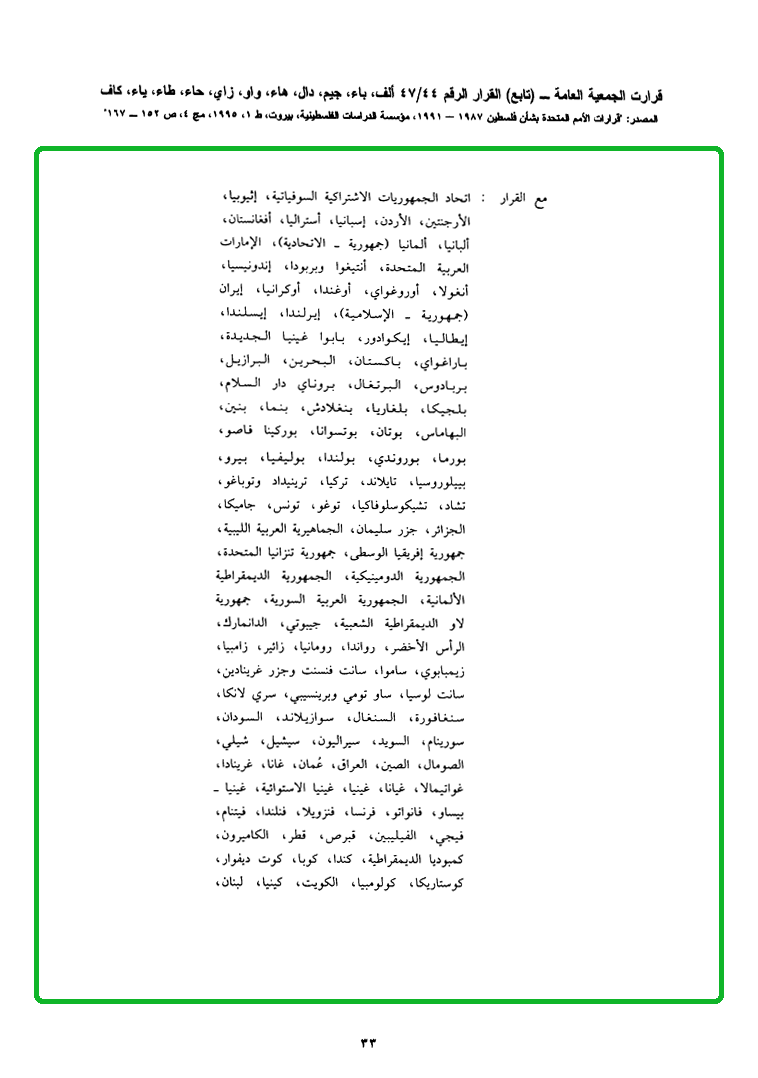 قرارت الجمعية العامة ــ (تابع) القرار الرقم ٤٧/٤٤ ألف، باء، جيم، دال، هاء، واو، زاي، حاء، طاء، ياء، كاف
المصدر: "قرارات الأمم المتحدة بشأن فلسطين ١٩٨٧ – ١٩٩١، مؤسسة الدراسات الفلسطينية، بيروت، ط ١، ١٩٩٥، مج ٤، ص ١٥٢ ــ ١٦٧"
مع القرار : اتحاد الجمهوريات الاشتراكية السوفياتية، إثيوبيا،
الأرجنتين، الأردن، إسبانيا، أستراليا، أفغانستان،
ألبانيا، ألمانيا (جمهورية ـ الاتحادية)، الإمارات
العربية المتحدة، أنتيغوا وبربودا، إندونيسيا،
أنغولا، أوروغواي، أوغندا، أوكرانيا، إيران
(جمهورية ـ الإسلامية)، إيرلندا، إيسلندا،
إيطاليا، إيكوادور، بابوا غينيا الجديدة،
باراغواي، باكستان، البحرين، البرازيل،
بربادوس، البرتغال، بروناي دار السلام،
بلجيكا، بلغاريا، بنغلادش، بنما، بنين،
البهاماس، بوتان، بوتسوانا، بوركينا فاصو،
بورما، بوروندي، بولندا، بوليفيا، بيرو،
بييلوروسيا، تايلاند، تركيا، ترينيداد وتوباغو،
تشاد، تشيكوسلوفاكيا، توغو، تونس، جاميكا،
الجزائر، جزر سليمان، الجماهيرية العربية الليبية،
جمهورية إفريقيا الوسطى، جمهورية تنزانيا المتحدة،
الجمهورية الدومينيكية، الجمهورية الديمقراطية
الألمانية، الجمهورية العربية السورية، جمهورية
لاو الديمقراطية الشعبية، جيبوتي، الدانمارك،
الرأس الأخضر، رواندا، رومانيا، زائير، زامبيا،
زيمبابوي، ساموا، سانت فنسنت وجزر غرينادين،
سانت لوسيا، ساو تومي وبرينسيبي، سري لانكا،
سنغافورة، السنغال، سوازيلاند، السودان،
سورينام، السويد، سيراليون، سيشيل، شيلي،
الصومال، الصين، العراق، عُمان، غانا، غرينادا،
غواتيمالا، غيانا، غينيا، غينيا الاستوائية، غينيا ـ
بيساو، فانواتو، فرنسا، فنزويلا، فنلندا، فيتنام،
فيجي، الفيليبين، قبرص، قطر، الكاميرون،
كمبوديا الديمقراطية، كندا، كوبا، كوت ديفوار،
كوستاريكا، كولومبيا، الكويت، كينيا، لبنان،
٣٣